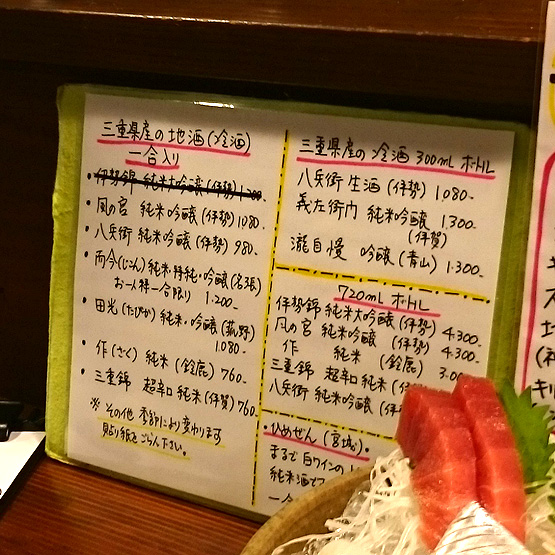 三重県産の地酒(冷酒)
一合入り
・伊勢錦 純米大吟醸(伊勢)1.200-
・風の宮 純米吟醸(伊勢)1.080-
・八兵衛 純米吟醸(伊勢)980-
・而今(じこん)純米・特純・吟醸(名張)
お一人様一合限り 1.200-
・田光(たびか)純米・吟醸(菰野)
1.080-
・作(さく)純米(鈴鹿)760-
・三重錦 超辛口純米(伊賀)760-
※その他 季節により変わります
貼り紙をごらん下さい。
三重県産の冷酒300mlボトル
八兵衛 生酒(伊勢)1.080-
義左衛門 純米吟醸 1.300-
(伊賀)
瀧自慢 吟醸(青山)1.300-
720mlボトル
伊勢錦 純米大吟醸(伊勢)4.300-
風の宮 純米吟醸(伊勢)4.300-
作 純米(鈴鹿)3.00
三重錦 超辛口純米(伊
八兵衛 純米吟醸(伊
・ひめぜん(宮城)・
まるで白ワインの
純米酒で
一合